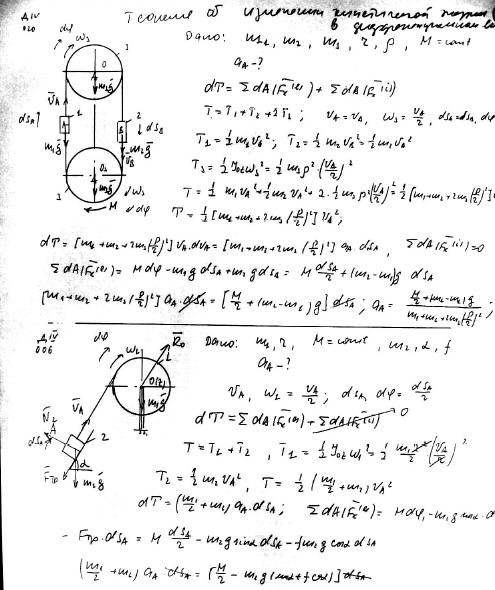 Д IV
020
Теорема об изменении кинетической
в дифференциальном
Дано: m₁, m₂, m₃, r, ρ, M = const
a_A - ?
dT = Σ dA(F̄ₖ⁽ᵉ⁾) + Σ dA(F̄ₖ⁽ⁱ⁾)
T = T₁ + T₂ + 2T₃ ; v_A = v_A, ω₃ = v_A/r, ds_A = ds_A, dφ
T₁ = ½ m₁v_A² ; T₂ = ½ m₂v_A² = ½ m₂v_A²
T₃ = ½ J₀₃ω₃² = ½ m₃ρ²·(v_A/r)²
T = ½ m₁v_A² + ½ m₂v_A² + 2·½ m₃ρ²(v_A/r)² = ½ [m₁+m₂+2m₃(ρ/r)²]
T = ½ [m₁+m₂+2m₃(ρ/r)²] v_A² ;
dT = [m₁+m₂+2m₃(ρ/r)²] v_A·dv_A = [m₁+m₂+2m₃(ρ/r)²] a_A·ds_A , Σ dA(F̄ₖ⁽ⁱ⁾) = 0 ,
Σ dA(F̄ₖ⁽ᵉ⁾) = M dφ - m₁g ds_A + m₂g ds_A = M ds_A/r + (m₂-m₁)g ds_A
[m₁+m₂+2m₃(ρ/r)²] a_A·ds_A = [M/r + (m₂-m₁)g] ds_A ; a_A = (M/r + (m₂-m₁)g)/(m₁+m₂+2m₃(ρ/r)²) ;
dφ
ω₃
3
O
m₃ḡ
v̄_A
ds_A
1
A
m₁ḡ
2
ds_A
m₂ḡ
v̄_B
O₃
m₃ḡ
ω₃
3
M
dφ
Д IV
006
Дано: m₁, r, M = const, m₂, α, f
a_A - ?
v_A, ω₁ = v_A/r ; ds_A, dφ = ds_A/r
dT = Σ dA(F̄ₖ⁽ᵉ⁾) + Σ dA(F̄ₖ⁽ⁱ⁾) 0
T = T₁ + T₂ , T₁ = ½ J₀₁ω₁² = ½ m₁r²/2 (v_A/r)²
T₂ = ½ m₂v_A² , T = ½ (m₁/2 + m₂) v_A²
dT = (m₁/2 + m₂) a_A·ds_A ; Σ dA(F̄ₖ⁽ᵉ⁾) = M dφ - m₂g sinα·d
- Fтр·ds_A = M ds_A/r - m₂g sinα ds_A - fm₂g cosα ds_A
(m₁/2 + m₂) a_A·ds_A = [M/r - m₂g (sinα + f cosα)] ds_A
dφ
ω₁
R̄₀
v̄_A
N̄₂
A
ds_A
2
α
Fтр
m₂ḡ
m₁ḡ